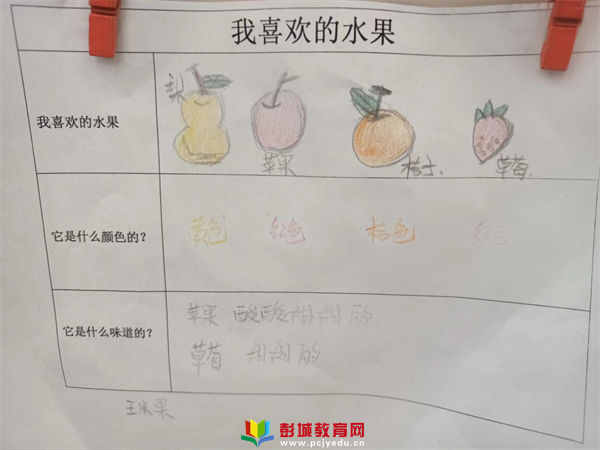 我喜欢的水果
我喜欢的水果
梨
苹果
桔子.
草莓.
它是什么颜色的?
黄色 红色 桔色 红色
它是什么味道的?
苹果 酸酸甜甜的.
草莓 甜甜的.
王米果
彭城教育网
www.pcjyedu.cn